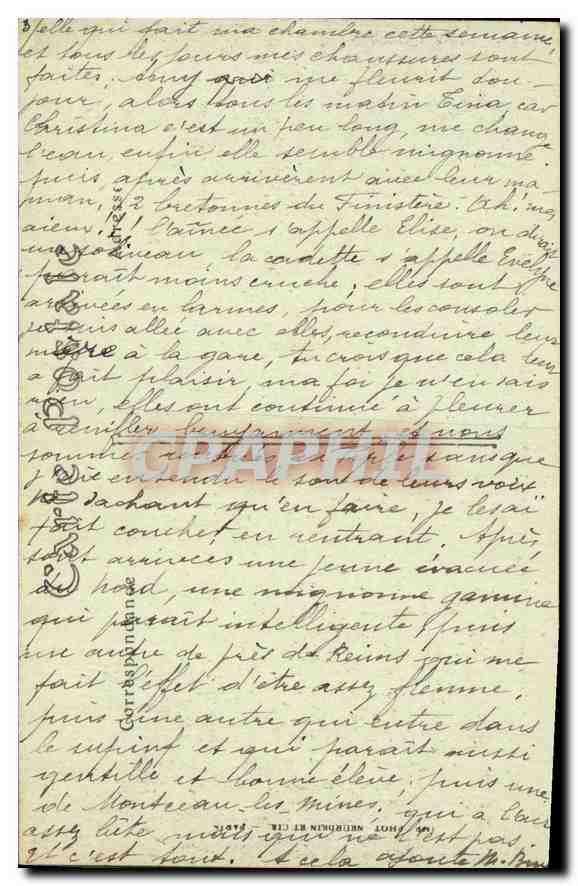 3/elle qui fait ma chambre cette semaine,
et tous les jours mes chaussures sont
faites, me fleurit tou-
jour, alors tous les matin Tina, car
Christina c'est un peu long, me change
l'eau, enfin elle semble mignonne
puis, après arrivèrent avec leur ma-
man, 2 bretonnes du Finistère. Ah! mes
aïeux!! l'aînée s'appelle Elise, on dirait
un la cadette s'appelle
paraît moins cruche; elles sont
arrivées en larmes, pour les consoler
je suis allée avec elles, reconduire leur
mère à la gare, tu crois que cela leur
a fait plaisir, ma foi je n'en sais
rien, elles ont continué à pleurer
à renifler et nous
sommes sans que
j'aie entendu le son de leurs voix
Ne sachant qu'en faire, je les ai
fait coucher en rentrant. Après,
sont arrivées une jeune évacuée
du Nord, une mignonne gamine
qui paraît intelligente, puis
une autre de près de Reims qui me
fait l'effet d'être assez flemme,
puis une autre qui entre dans
le supinf et qui paraît aussi
gentille et bonne élève, puis une
de Montceau-les-Mines, qui a l'air
assez bête mais qui ne l'est pas
et c'est tout. A cela ajoute M.
Carte Postale
Correspondance
Adresse
PHOT NEURDEIN ET CIE - PARIS
CPAPHIL